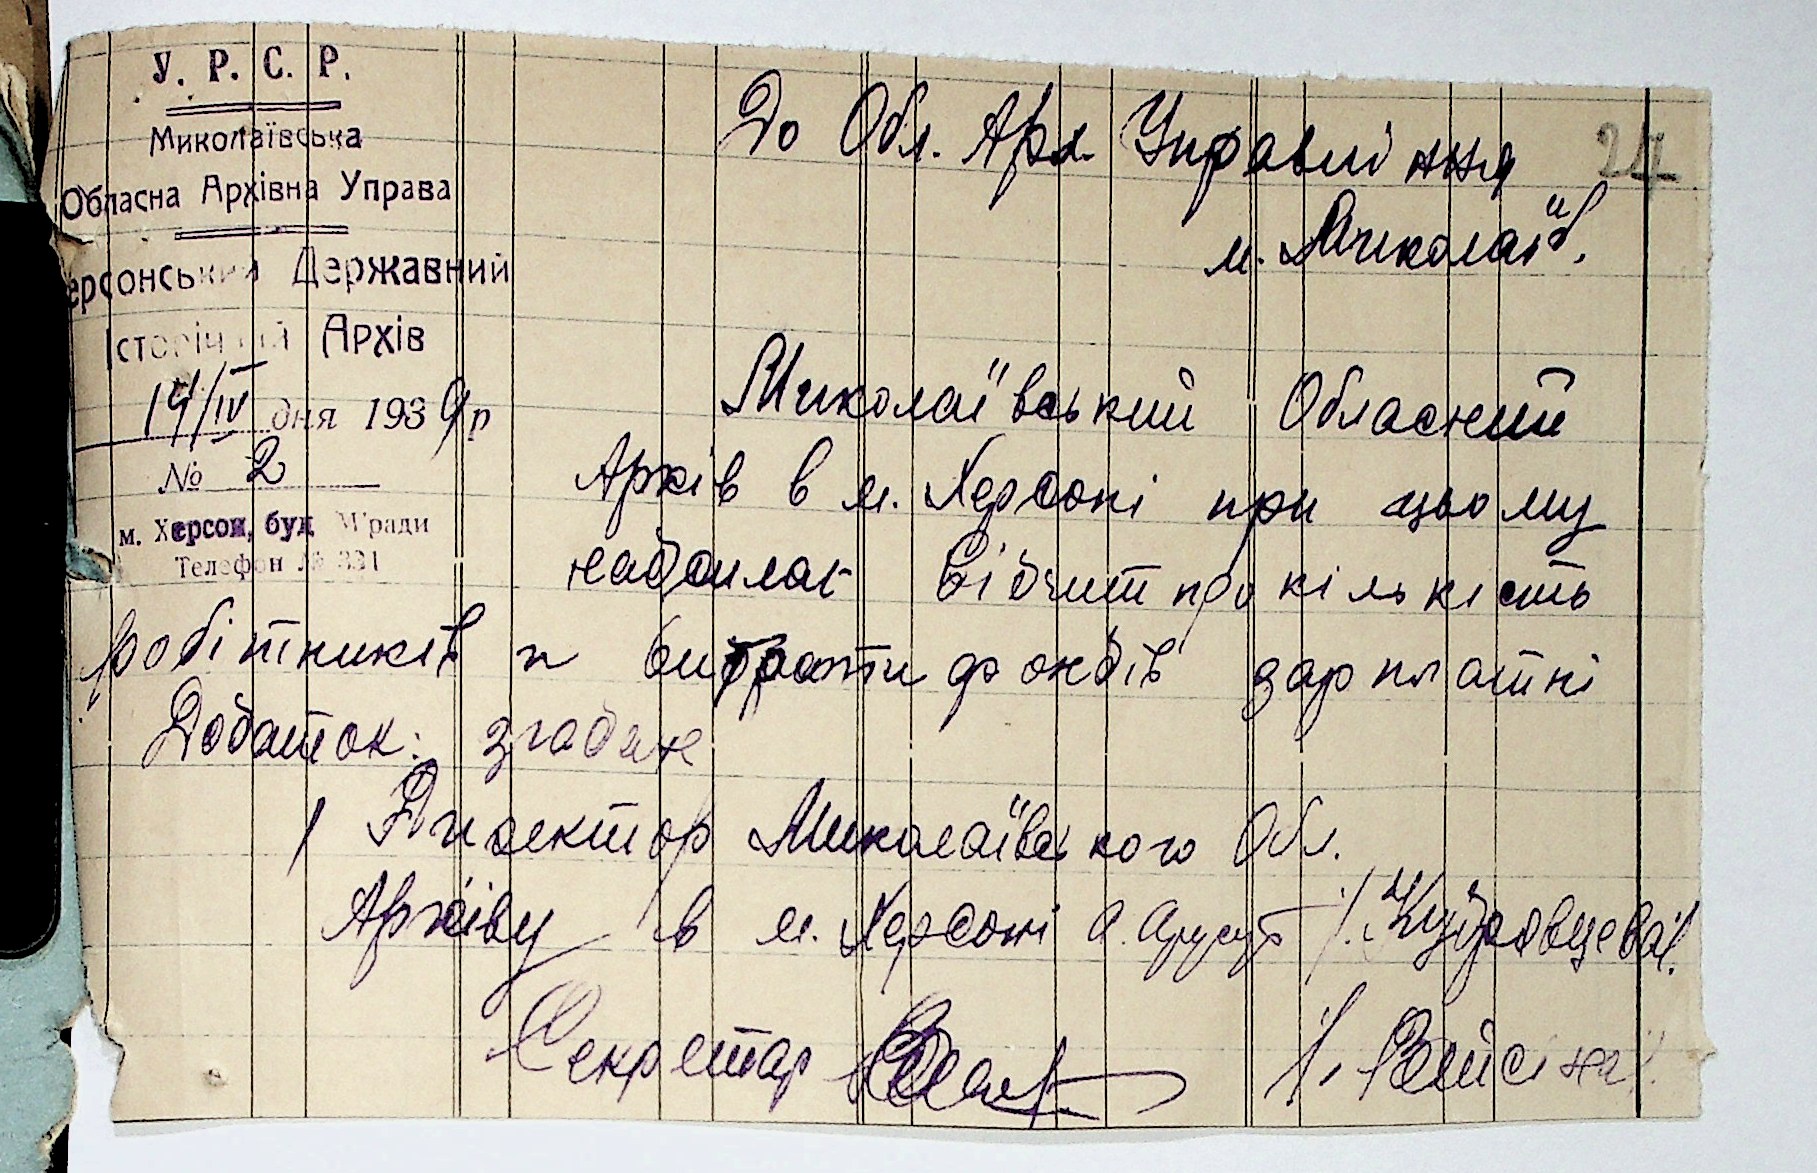 У. Р. С. Р.
Миколаївська
Обласна Архівна Управа
ерсонський Державний
Історічний Архів
14/IV дня 1939 р
№ 2
м. Херсон, буд М'ради
Телефон № 331
24
До Обл. Арх. Управління
м. Миколаїв.
Миколаївський Обласний
Архів в м. Херсоні при цьому
надсилає відчит про кількість
робітників и витрати фондів зарплатні
Додаток: згадане
Директор Миколаївського Обл.
Архіву в м. Херсоні /. Кудрявцева/.
Секретар /. Вайсіна/